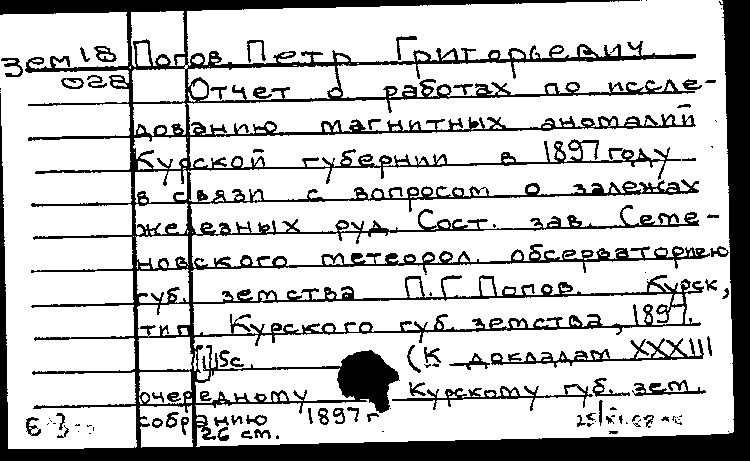 Зем 18 Попов, Петр Григорьевич.
028
Отчет о работах по иссле-
дованию магнитных аномалий
Курской губернии в 1897 году
в связи с вопросом о залежах
железных руд. Сост. зав. Семе-
новского метеорол. обсерваториею
губ. земства П.Г. Попов. Курск,
тип. Курского губ. земства, 1897.
[1]15с. (К докладам XXXIII
очередному Курскому губ. зем.
собранию 1897 г
26 см.